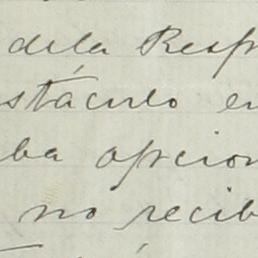 dela Resp
stáculo en
ba opcion
no recib